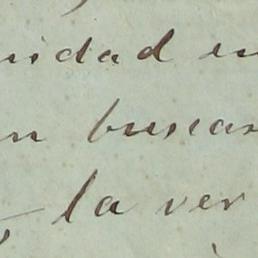 nidad en
en buscar
la ver